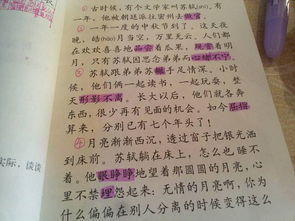 ①古时候,有个文学家叫苏轼(shì),有
一年,他被朝廷派往密州去做官。
②一年一度的中秋节到了。这天夜
晚,皓(hào)月当空,万里无云。人们都
在欢欢喜喜地品尝着瓜果,观赏着明
月,只有苏轼因思念弟弟而心绪不宁。
③苏轼跟弟弟苏辙手足情深。小时
候,他们俩一起读书,一起玩耍,整
天形影不离。长大以后,他们就各奔
东西,很少再有见面的机会。如今屈指
算来,分别已有七个年头了!
④月亮渐渐西沉,透过窗子把银光洒
到床前。苏轼躺在床上,怎么也睡不
着。他眼睁睁地望着那圆圆的月亮,心
里不禁埋怨起来:无情的月亮啊,你为
什么偏偏在别人分离的时候变得这么
实际,谈谈